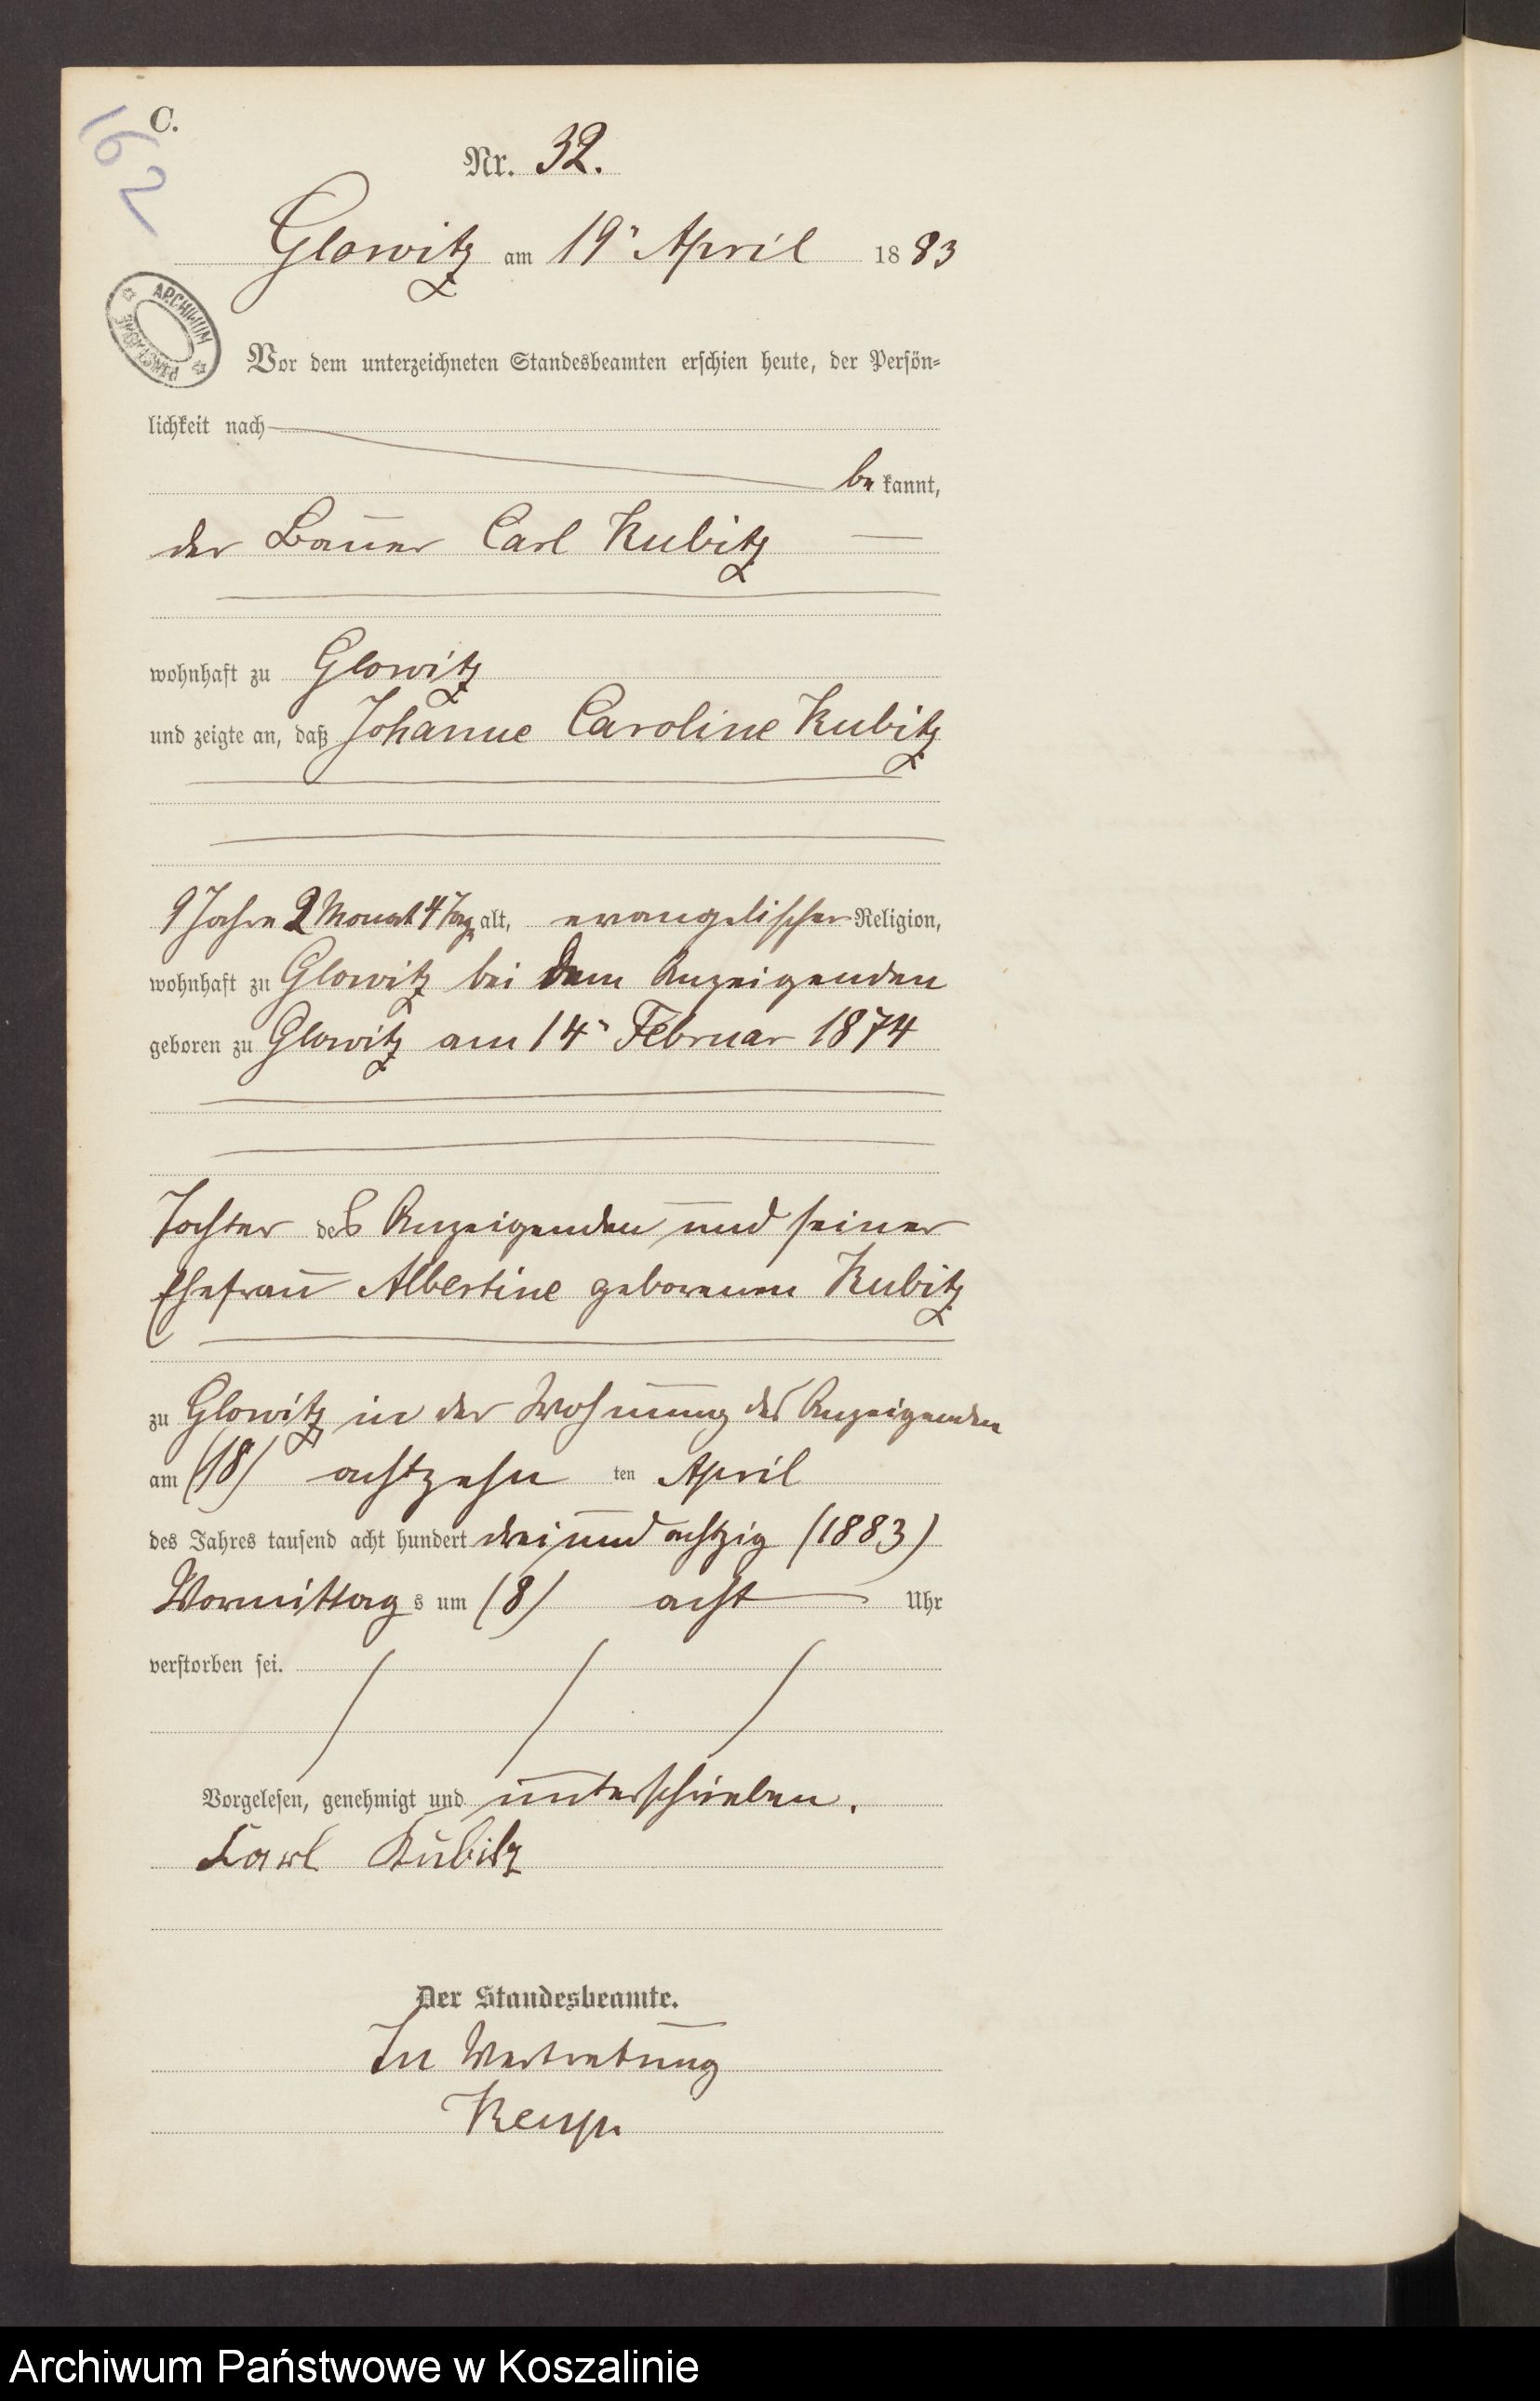 C.
162
Nr. 32.
Glowitz am 19ᵗ April 1883
ARCHIWUM PAŃSTWOWE
Vor dem unterzeichneten Standesbeamten erschien heute, der Persön-
lichkeit nach
be kannt,
der Bauer Carl Kubitz
wohnhaft zu Glowitz
und zeigte an, daß Johanne Caroline Kubitz
9 Jahre 2 Monat 4 Tage alt, evangelischer Religion,
wohnhaft zu Glowitz bei dem Anzeigenden
geboren zu Glowitz am 14ᵗ Februar 1874
Tochter des Anzeigenden und seiner
Ehefrau Albertine geborenen Kubitz
zu Glowitz in der Wohnung des Anzeigenden
am (18) achtzehn ten April
des Jahres tausend acht hundert drei und achtzig (1883)
Vormittag s um (8) acht Uhr
verstorben sei.
Vorgelesen, genehmigt und unterschrieben.
Karl Kubitz
Der Standesbeamte.
In Vertretung
Archiwum Państwowe w Koszalinie